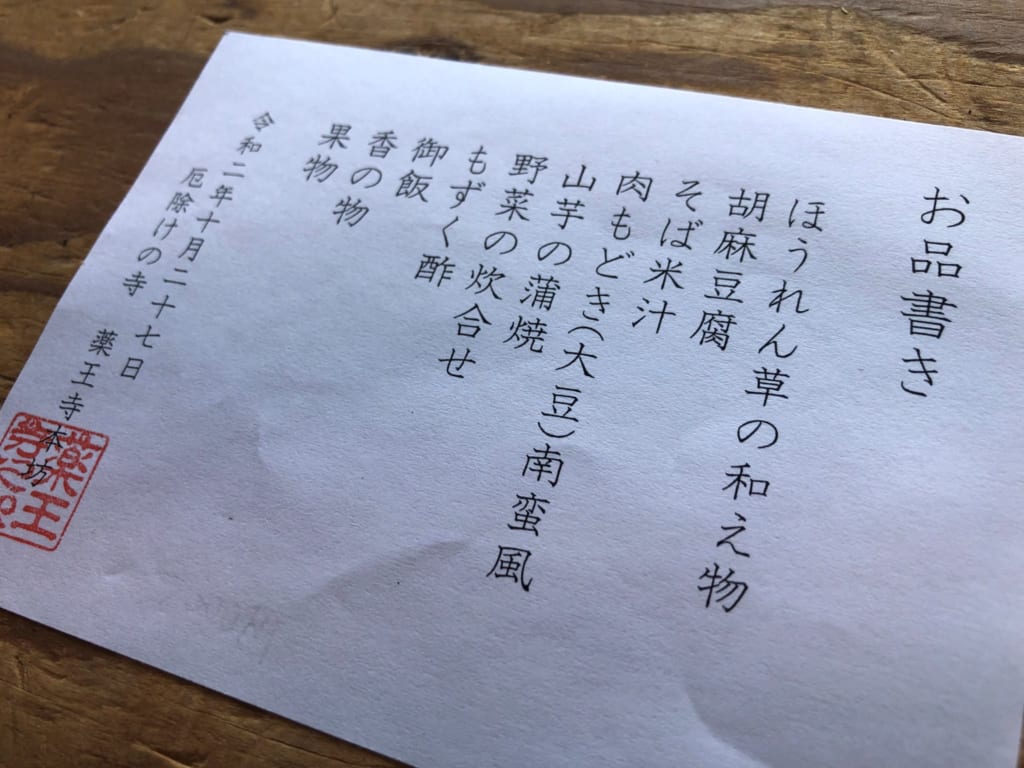 お品書き
ほうれん草の和え物
胡麻豆腐
そば米汁
肉もどき(大豆)南蛮風
山芋の蒲焼
野菜の炊合せ
もずく酢
御飯
香の物
果物
令和二年十月二十七日
厄除けの寺 薬王寺本坊
薬王